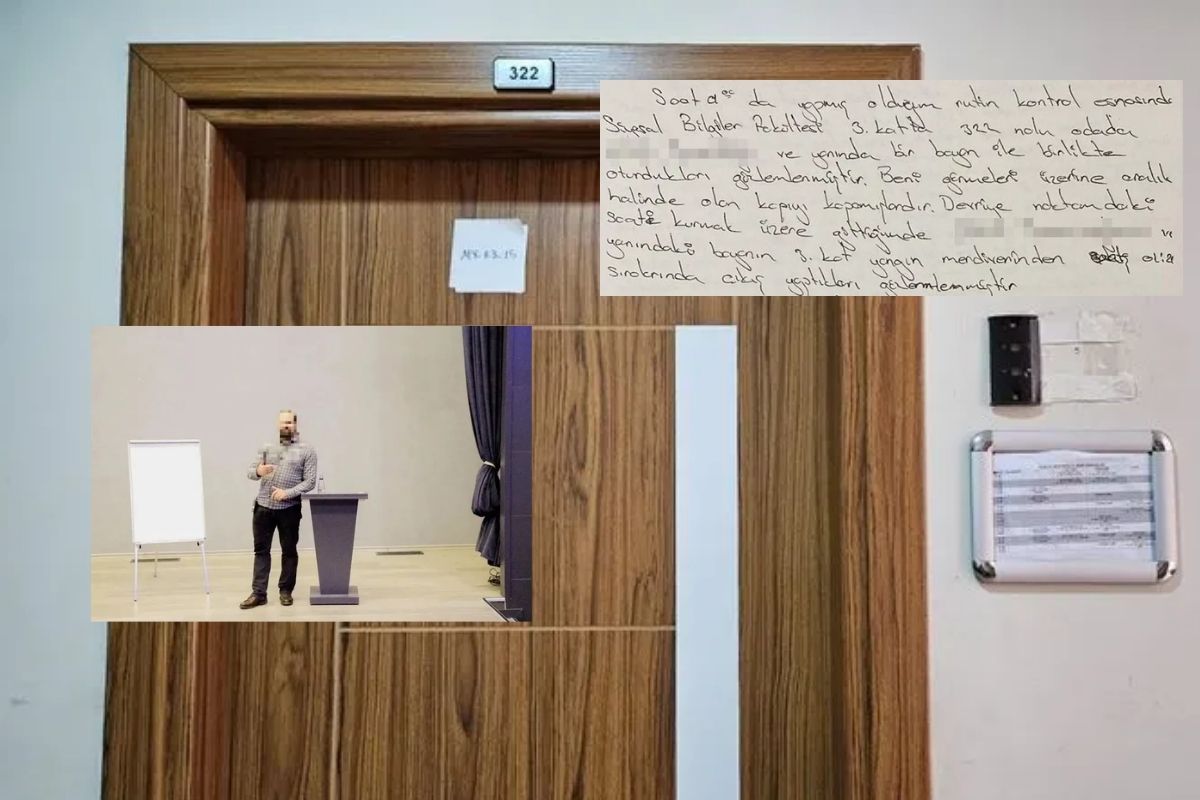 322
Saat da yapmış olduğum rutin kontrol esnasında
Siyasal Bilgiler Fakültesi 3. katta 322 nolu odada
ve yanında bir bayan ile birlikte
oturdukları gözlemlenmiştir. Beni görmeleri üzerine aralık
halinde olan kapıyı kapamışlardır. Devriye noktamdaki
saati kurmak üzere gittiğimde ve
yanındaki bayanın 3. kat yangın merdiveninden
sıralarında çıkış yaptıkları gözlemlenmiştir